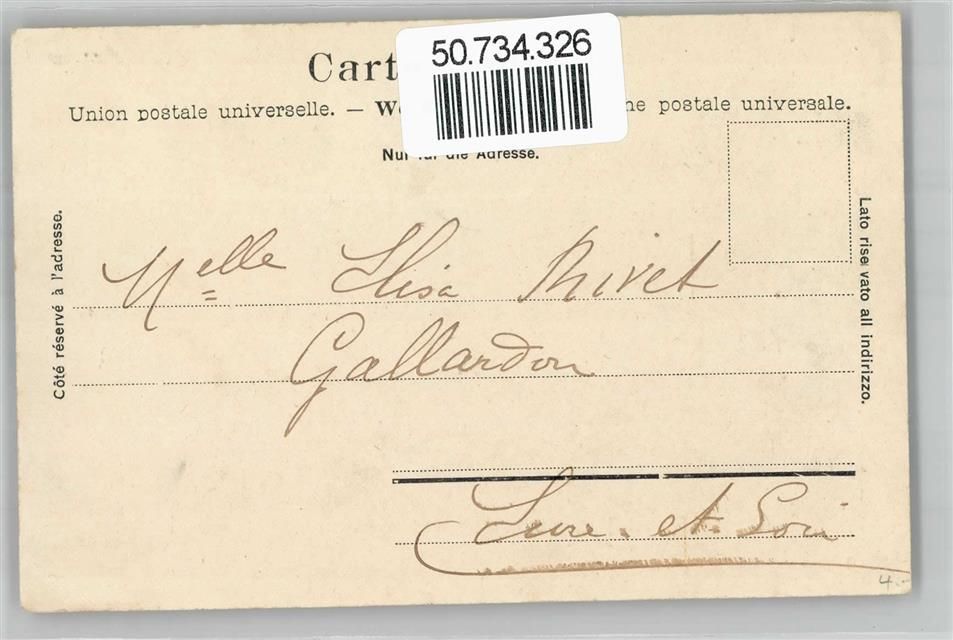 50.734.326
Cart
Union postale universelle. — We ne postale universale.
Nur für die Adresse.
Côté réservé à l'adresse.
Lato rise vato all indirizzo.
Melle Elisa Rivet
Gallardon
Eure. et. Loir
4.-